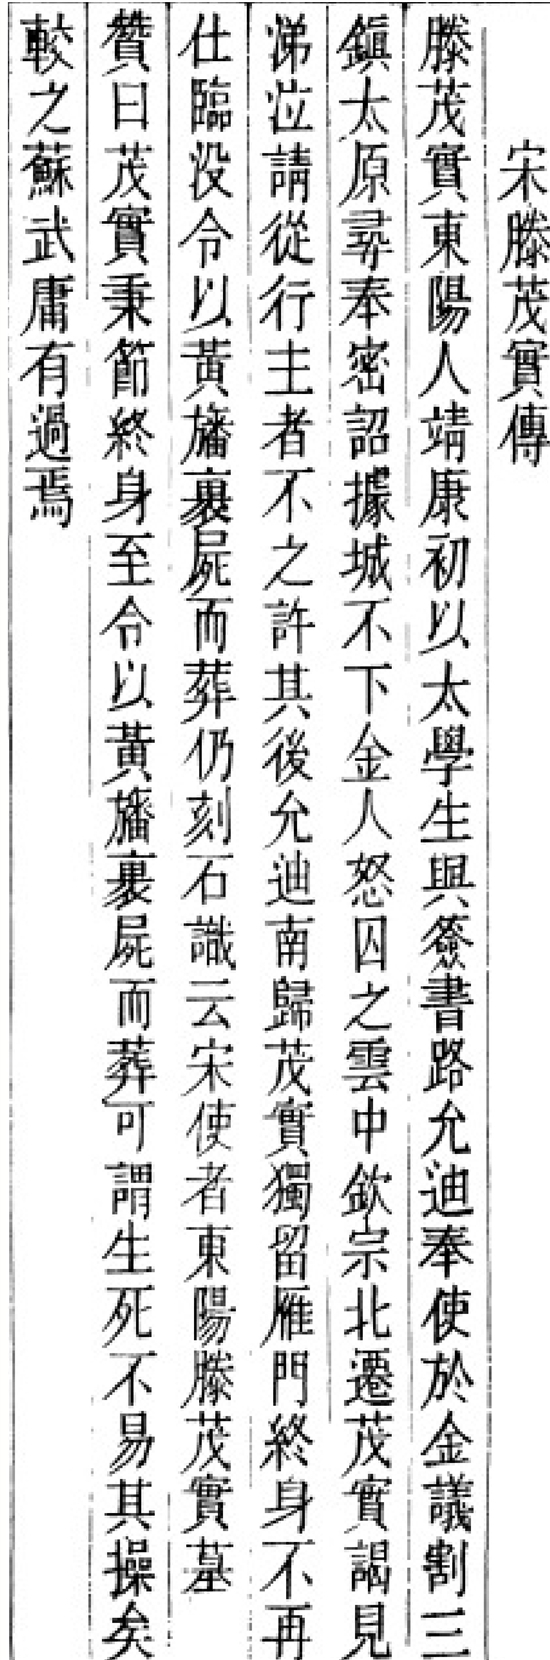 宋滕茂實傳
滕茂實東陽人靖康初以太學生與簽書路允迪奉使於金議割三
鎭太原尋奉密詔據城不下金人怒囚之雲中欽宗北遷茂實謁見
涕泣請從行主者不之許其後允迪南歸茂實獨留雁門終身不再
仕臨没令以黃旛裹屍而葬仍刻石識云宋使者東陽滕茂實墓
贊曰茂實秉節終身至令以黃旛裹屍而葬可謂生死不易其操矣
較之蘇武庸有過焉